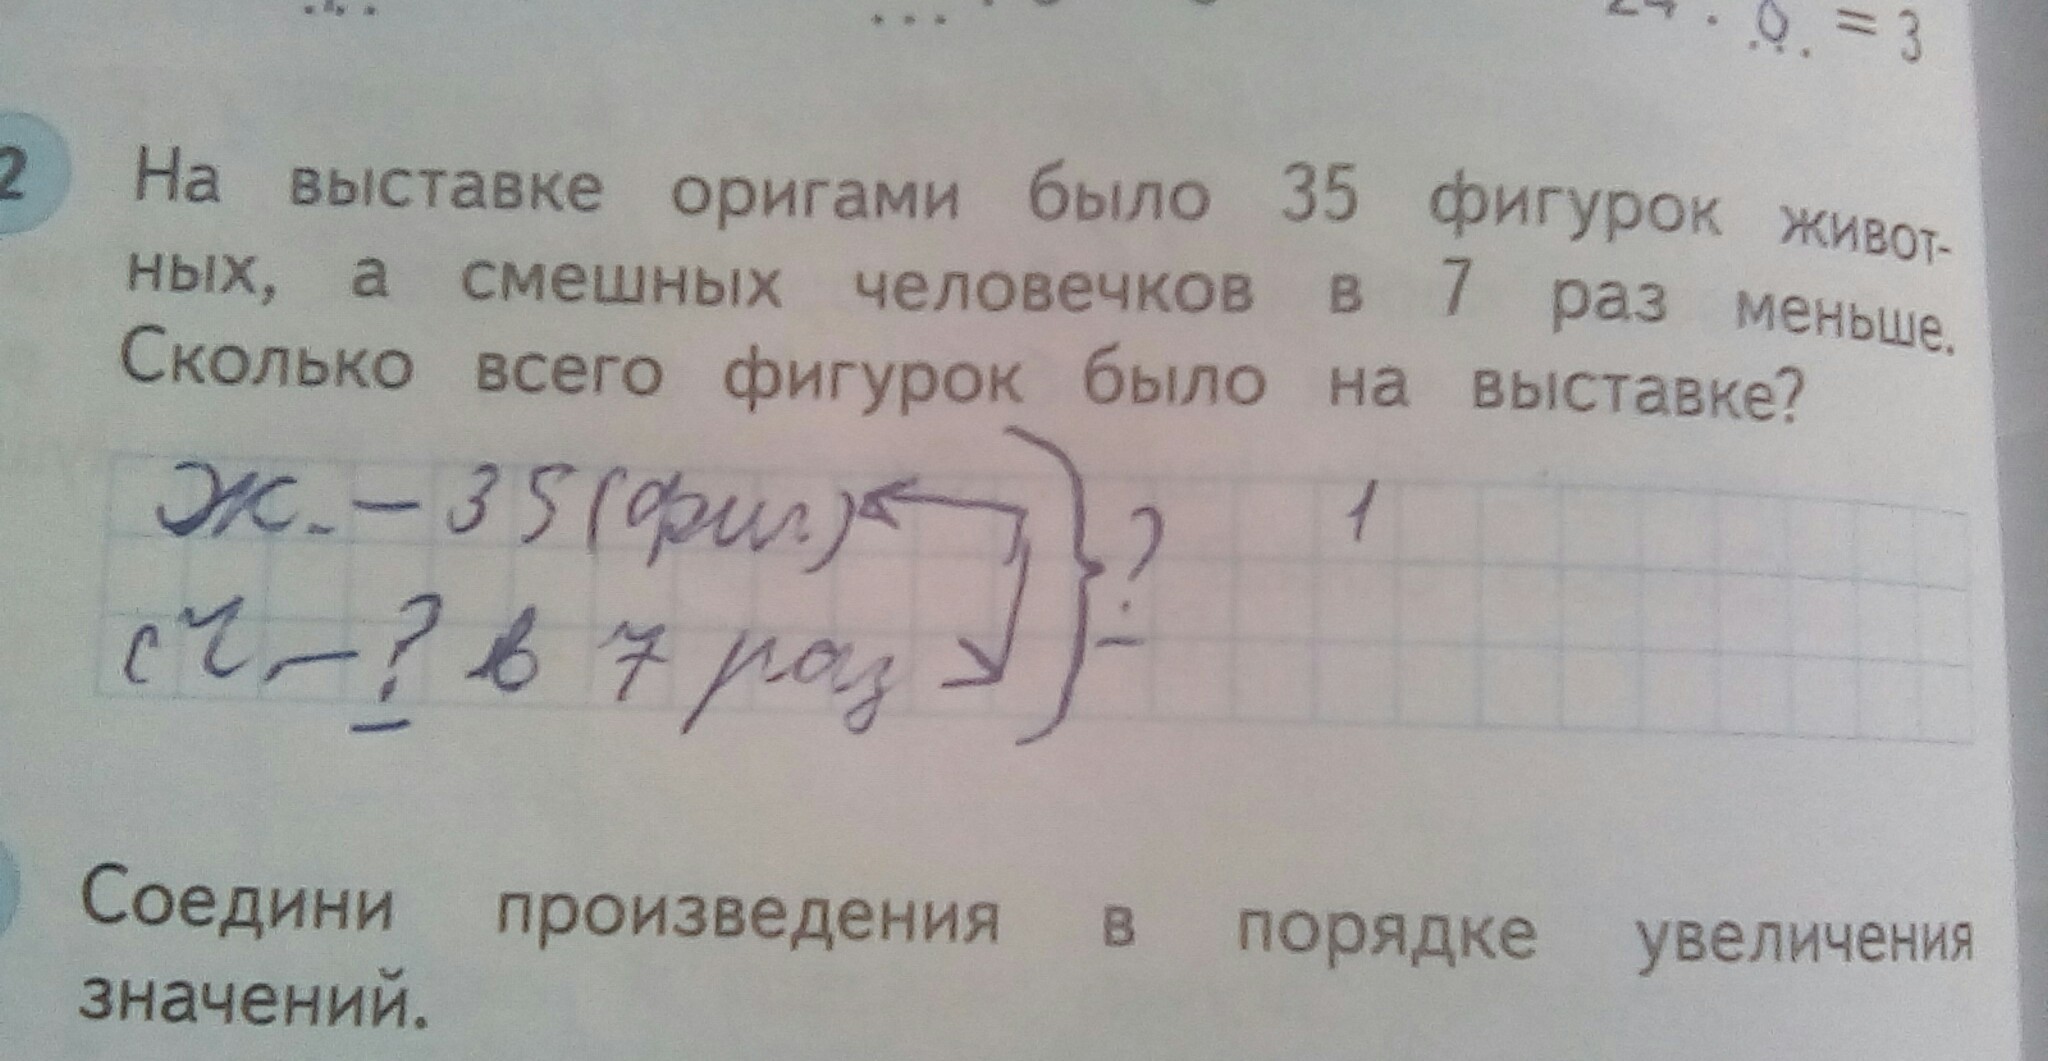 = 3
2 На выставке оригами было 35 фигурок живот-
ных, а смешных человечков в 7 раз меньше.
Сколько всего фигурок было на выставке?
Ж. – 35 (фиг.) } ? 1
сч. – ? в 7 раз
Соедини произведения в порядке увеличения
значений.